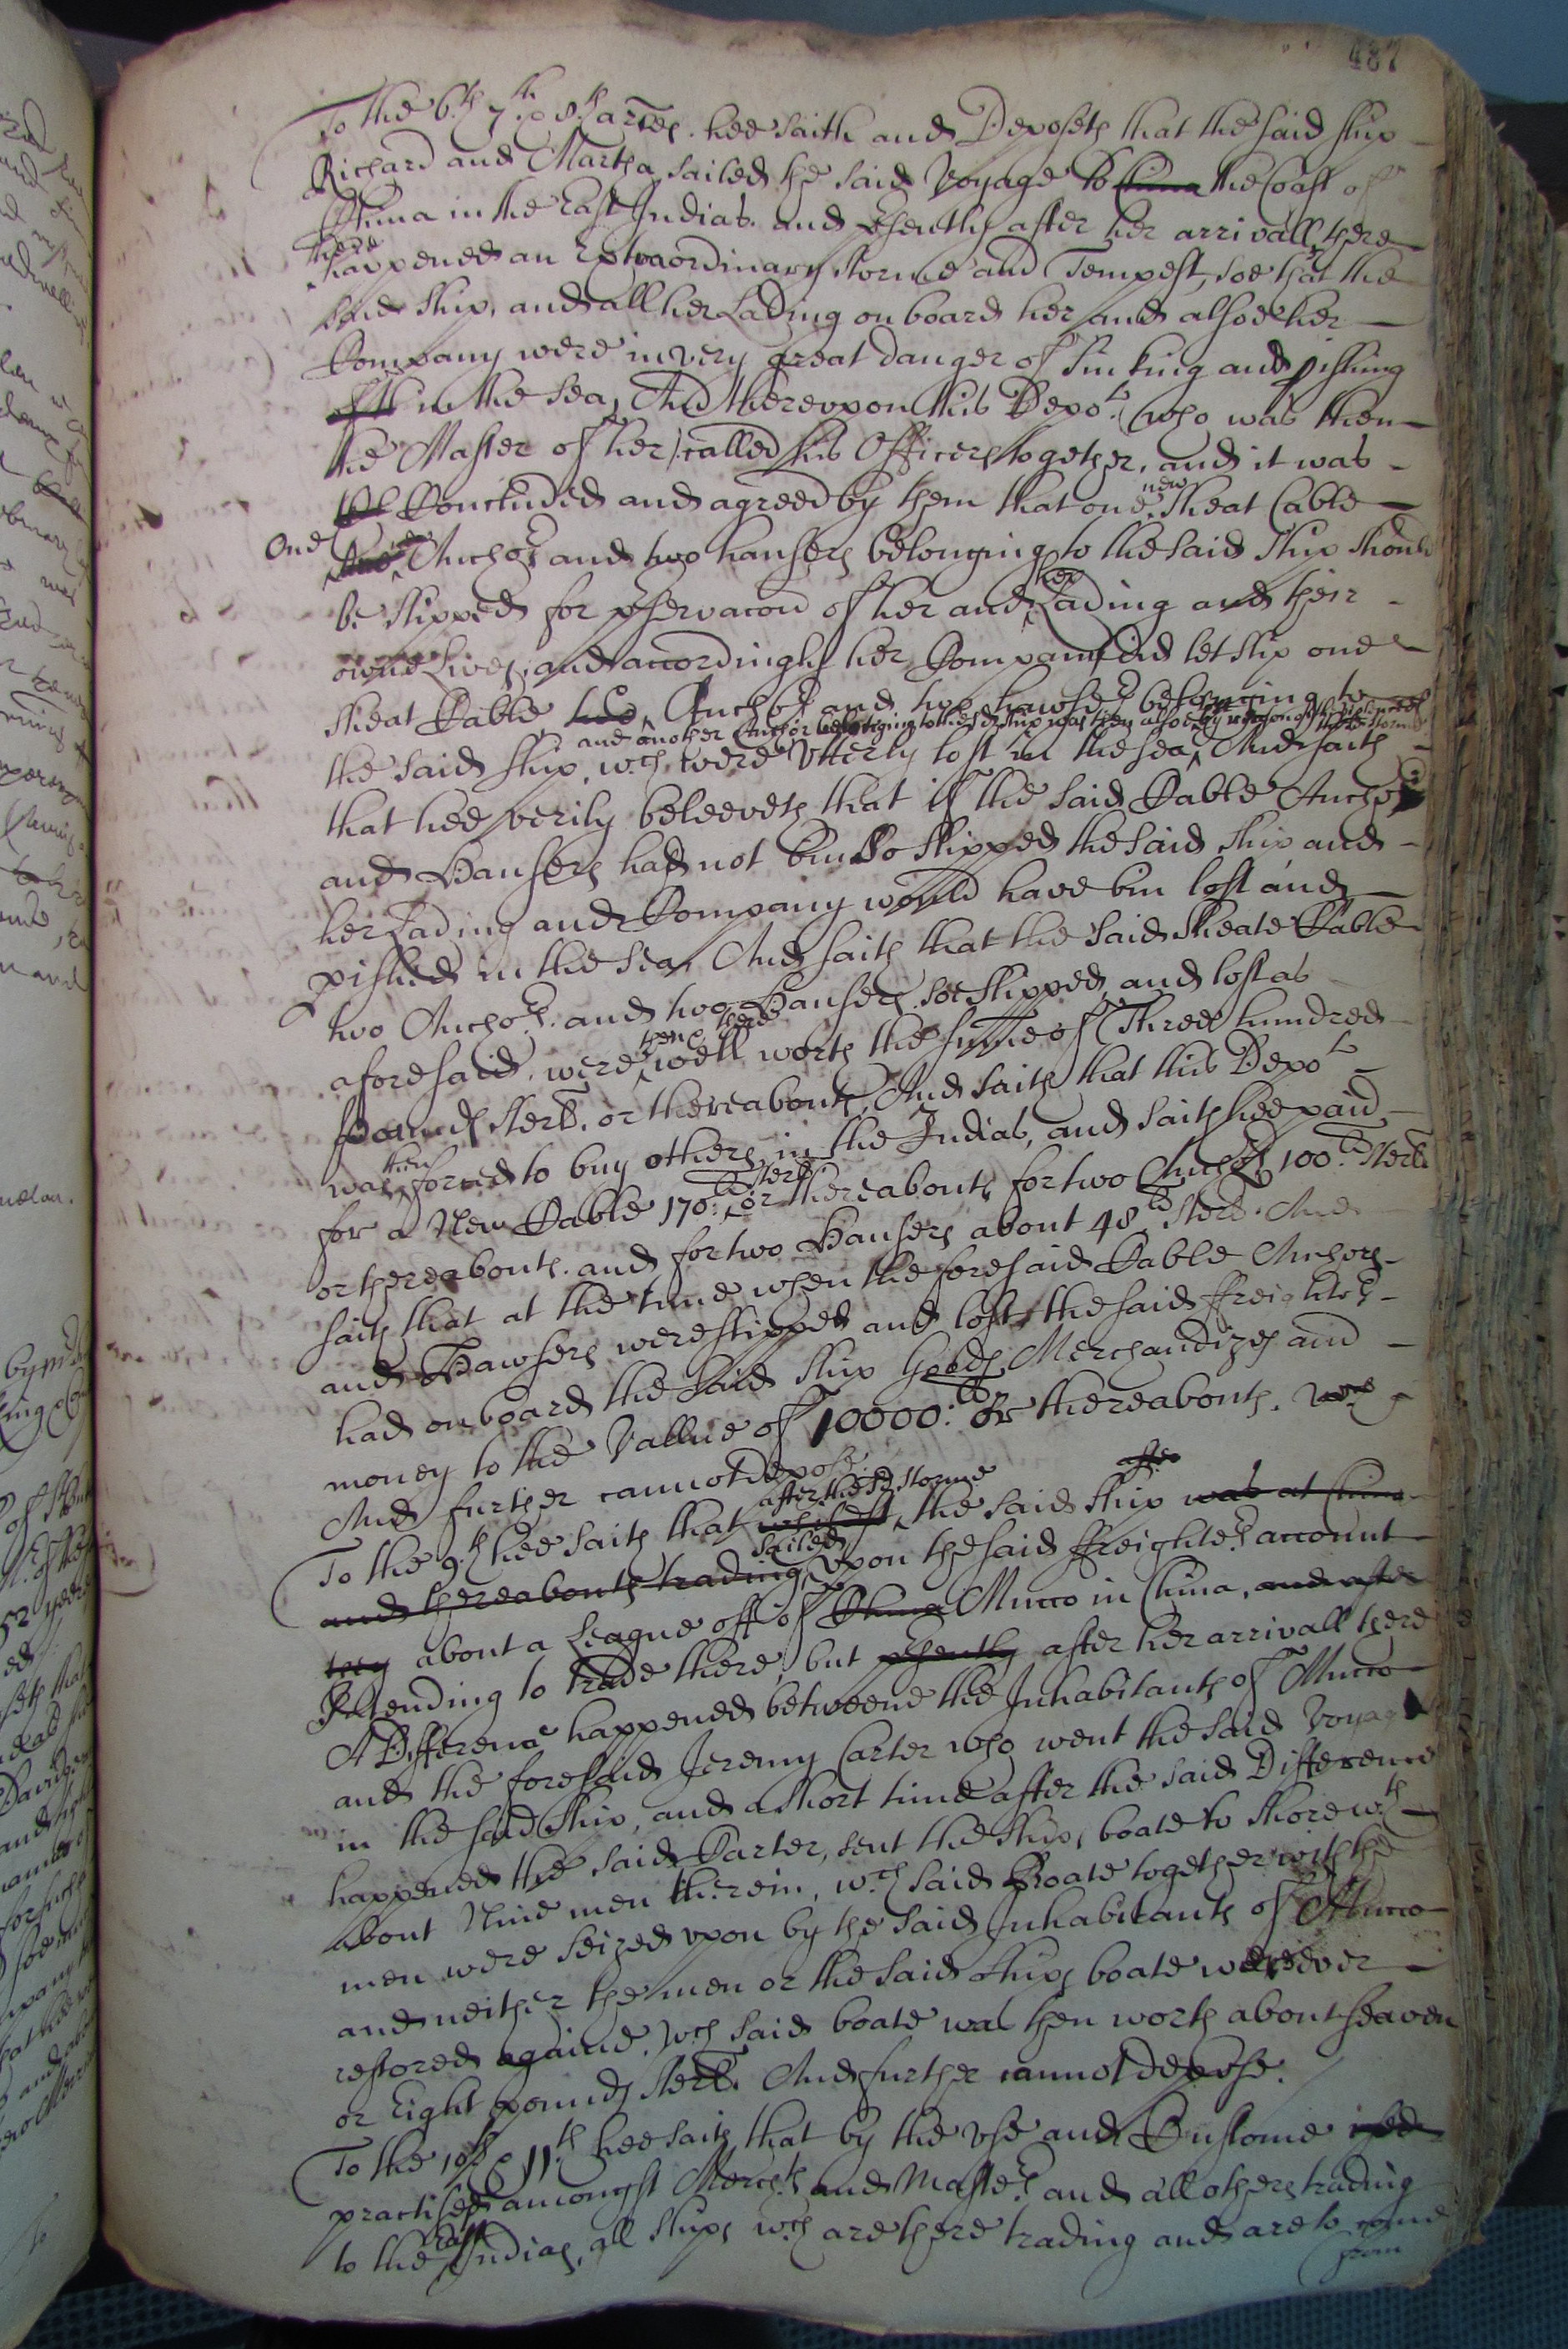 487
To the 6th 7th & 8th arles. hee saith and Deposeth that the said ship
Richard and Martha sailed the said Voyage to China the Coast of
China in the East Indias. and psently after her arrivall there
there
happened an Extraordinary storme and Tempest, soe that the
said ship, and all her Lading on board her and alsoe her
Company were in very great danger of sinking and pishing
in the sea, And therevpon this Depot. (who was then
the Master of her) called his Officers together, and it was
Concluded and agreed by them that one new Sheat Cable
One
two new Anchor and two hausers belonging to the said ship should
be slipped for pservacon of her and her Lading and their
owne Lives, and accordingly her Company did let slip one
sheat Cable two Anchor and two hawsers belonging to
and another Anchor belonging to the sd ship was then alsoe by reason of the violence of the storme
the said ship, wch were vtterly lost in the sea, And saith
that hee verily beleeveth that if the said Cable Anchor
and Hausers had not bin so slipped the said ship and
her Lading and Company would have bin lost and
pished in the sea. And saith that the said Sheate Cable
two Anchors. and two Hausers. soe slipped, and lost as
aforesaid. were then there well worth the summe of Three hundred
pounds sterl. or thereabouts, And saith that this Depot
was then forced to buy others in the Indias, and saith hee paid
for a New Cable 170li sterl or thereabouts for two Anchors 100li sterl
or thereabouts. and for two Hausers about 48li sterl. And
saith that at the time when the foresaid Cable Anchors
and Hawsers were slipped and lost, the said ffreighters
had on board the said ship Goods, Merchandizes and
money to the Vallue of 10000li or thereabouts.
And further cannot depose.
To the 9th hee saith that whilest after the sd storme the said ship after was at China
and thereabouts trading, sailed vpon the said ffreighters account
they about a League off of China Macco in China, and after
Intending to trade there, but psently after her arrivall there
A Difference happened betweene the Inhabitants of Macco
and the foresaid Jeremy Carter who went the said Voyage
in the said ship, and a short time after the said Difference
happened the said Carter, sent the ships boate to shore wth
about Nine men therein, wch said Boate together with the
men were seized vpon by the said Inhabitants of Macco
and neither the men or the said ships boate were ever
restored againe. wch said boate was then worth about seaven
or Eight pounds sterl. And further cannot depose.
To the 10th & 11th hee saith that by the vse and Custome used
practised amongst Merchts and Masters and all others trading
to the East Indias, all ships wch are there trading and are to come
from